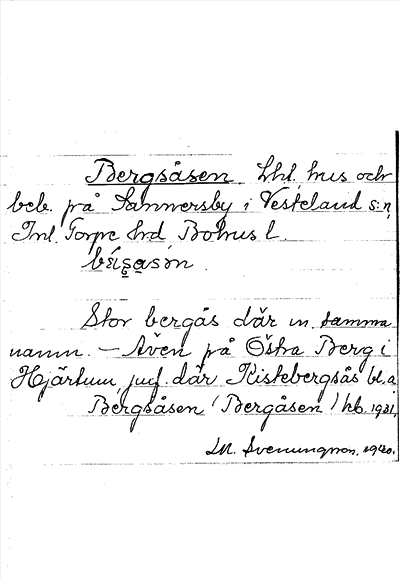 Bergsåsen. Lht, hus och
beb. på Sannersby i Vesteland s:n,
Inl. Torpe hrd Bohus l.
Stor bergås där m. samma
namn. — Även på Östra Berg i
Hjärtum, jmf. där Kistebergsås bl.a
Bergsåsen (Bergåsen) hb. 1931,
LM. Svenungsson, 1940.